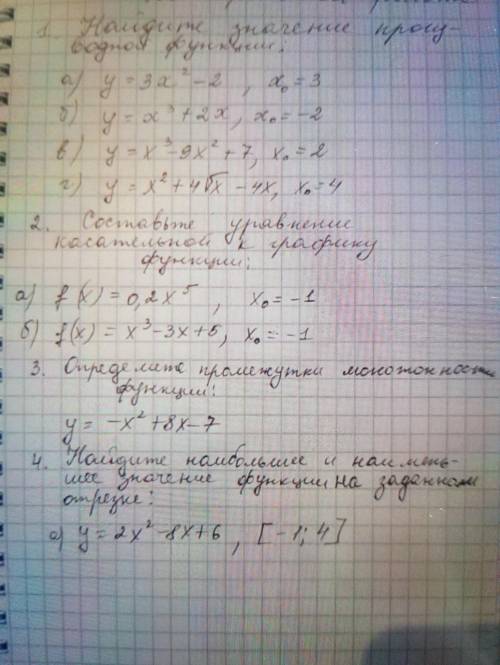 1. Найдите значение произ-
водной функции:
а) y = 3x² - 2 , x₀ = 3
б) y = x³ + 2x, x₀ = -2
в) y = x³ - 9x² + 7, x₀ = 2
г) y = x² + 4√x - 4x, x₀ = 4
2. Составьте уравнение
касательной к графику
функции:
а) f(x) = 0,2x⁵ , x₀ = -1
б) f(x) = x³ - 3x + 5, x₀ = -1
3. Определите промежутки монотонности
функции:
y = -x² + 8x - 7
4. Найдите наибольшее и наимень-
шее значение функции на заданном
отрезке:
а) y = 2x² - 8x + 6 , [-1; 4]